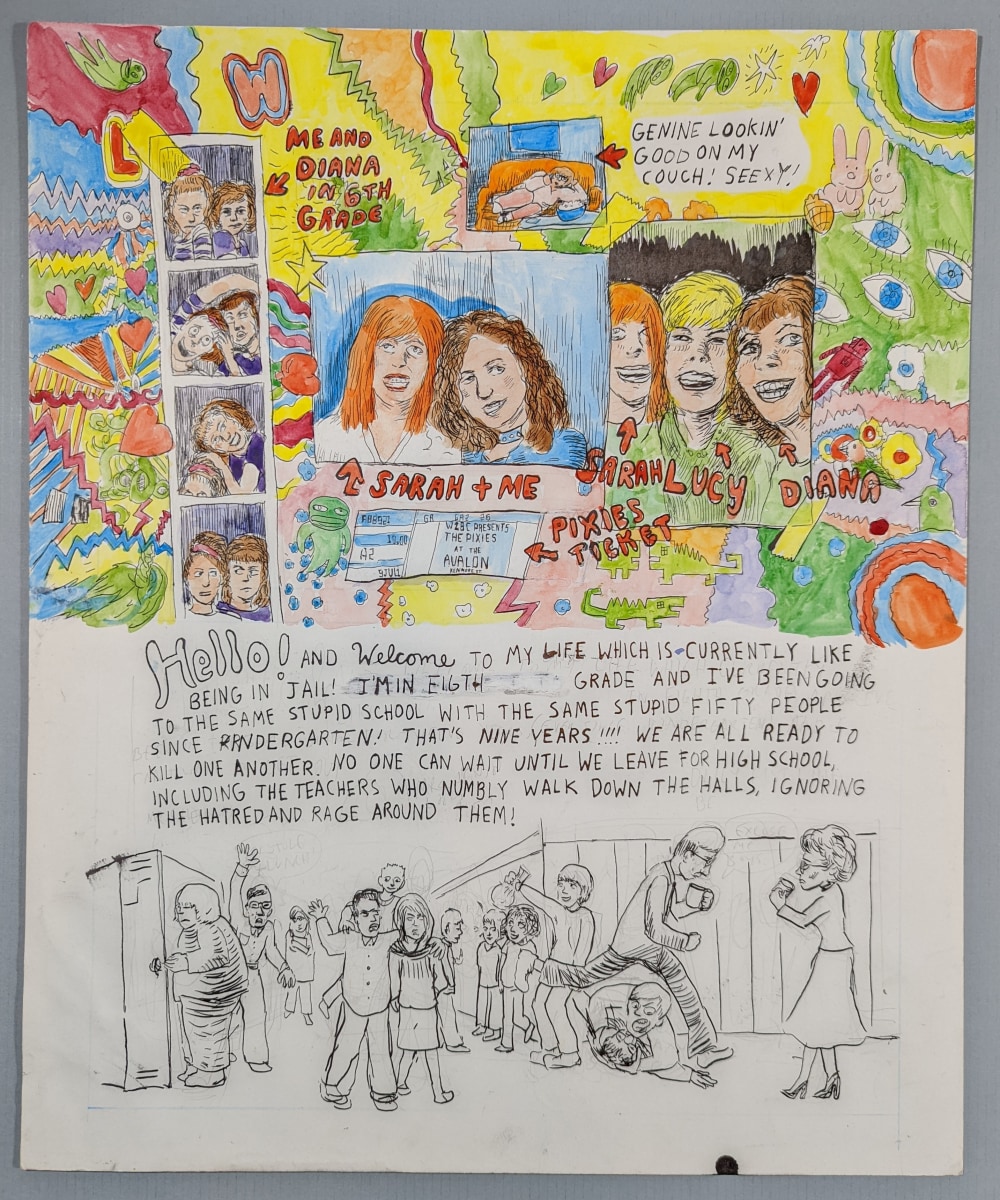 L
W
ME AND
DIANA
IN 6TH
GRADE
GENINE LOOKIN'
GOOD ON MY
COUCH! SEEXY!
SARAH + ME
SARAH
LUCY
DIANA
PIXIES
TICKET
10.00
A2
9JUL1
PRESENTS
THE PIXIES
AT THE
AVALON
Hello! AND Welcome TO MY LIFE WHICH IS CURRENTLY LIKE
BEING IN JAIL! I'M IN EIGTH GRADE AND I'VE BEEN GOING
TO THE SAME STUPID SCHOOL WITH THE SAME STUPID FIFTY PEOPLE
SINCE KINDERGARTEN! THAT'S NINE YEARS!!!! WE ARE ALL READY TO
KILL ONE ANOTHER. NO ONE CAN WAIT UNTIL WE LEAVE FOR HIGH SCHOOL,
INCLUDING THE TEACHERS WHO NUMBLY WALK DOWN THE HALLS, IGNORING
THE HATRED AND RAGE AROUND THEM!